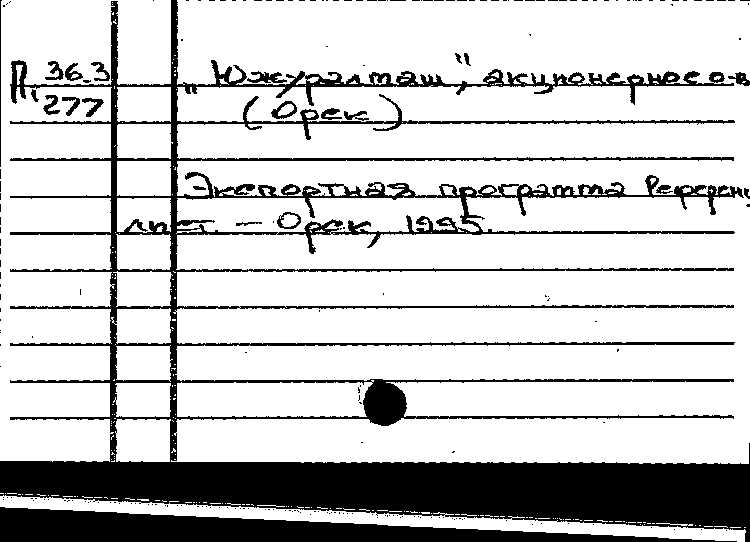 П. 36.3 „Южуралмаш", акционерное о-в
277 (Орск)
Экспортная программа Референц
лист. – Орск, 1995.